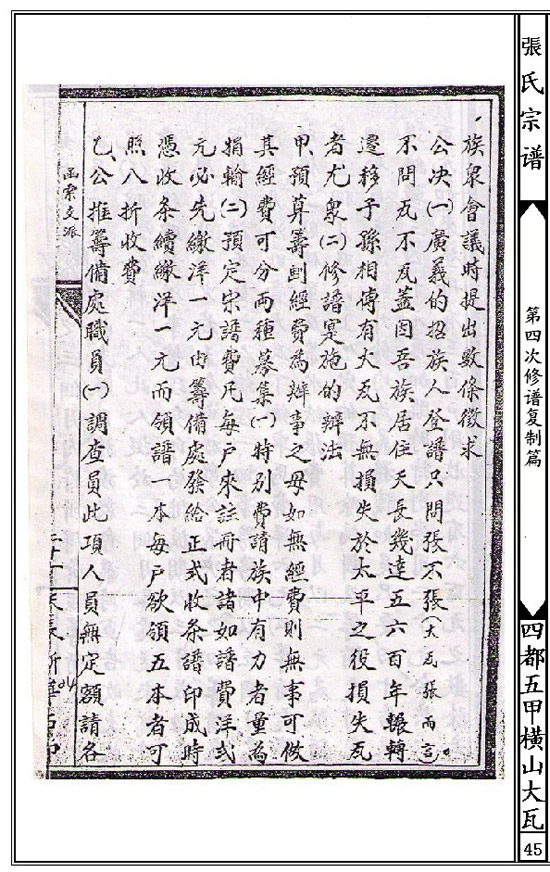 張氏宗谱
第四次修谱复制篇
四都五甲橫山大瓦
45
族眾會議時提出數條徵求
公决(一)廣義的招族人登譜只問張不張(大瓦張而言
不問瓦不瓦蓋因吾族居住天長幾達五六百年輾轉
遷移子孫相傳有大瓦不無損失於太平之役損失瓦
者尤衆(二)修譜寔施的辦法
甲、預算籌劃經費為辦事之母如無經費則無事可做
其經費可分兩種募集(一)特別費請族中有力者量為
捐輸(二)預定宗譜費凡每戶來註冊者諸如譜費洋弍
元必先繳洋一元由籌備處發給正式收条譜印成時
憑收条續繳洋一元而領譜一本每戶欲領五本者可
照八折收費
乙、公推籌備處職員(一)調查員此項人員無定額請各
支派